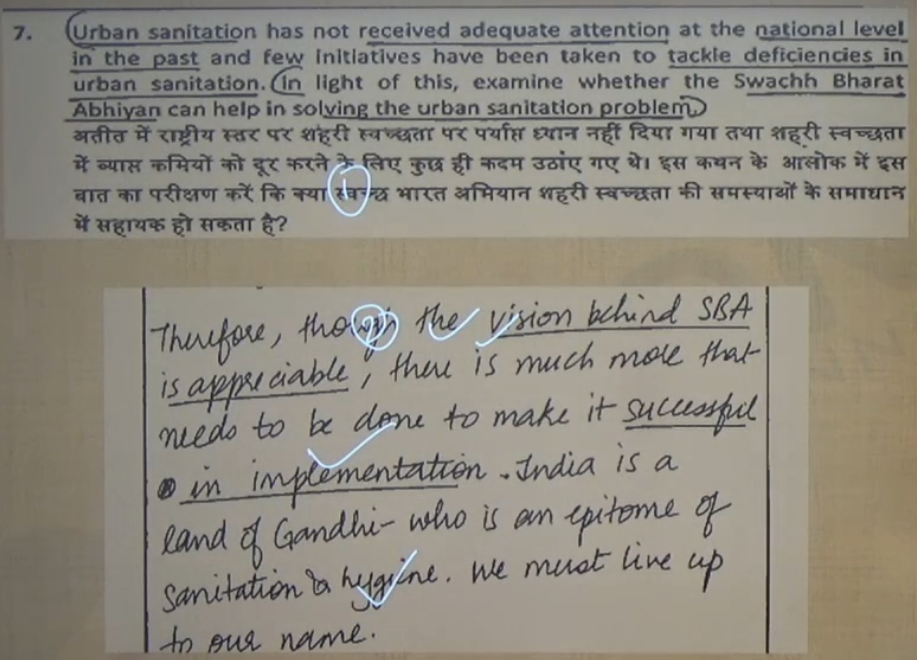 7. Urban sanitation has not received adequate attention at the national level
in the past and few initiatives have been taken to tackle deficiencies in
urban sanitation. In light of this, examine whether the Swachh Bharat
Abhiyan can help in solving the urban sanitation problem.
अतीत में राष्ट्रीय स्तर पर शहरी स्वच्छता पर पर्याप्त ध्यान नहीं दिया गया तथा शहरी स्वच्छता
में व्याप्त कमियों को दूर करने के लिए कुछ ही कदम उठाए गए थे। इस कथन के आलोक में इस
बात का परीक्षण करें कि क्या स्वच्छ भारत अभियान शहरी स्वच्छता की समस्याओं के समाधान
में सहायक हो सकता है?
Therefore, though the vision behind SBA
is appreciable, there is much more that
needs to be done to make it successful
in implementation. India is a
land of Gandhi - who is an epitome of
sanitation & hygiene. We must live up
to our name.